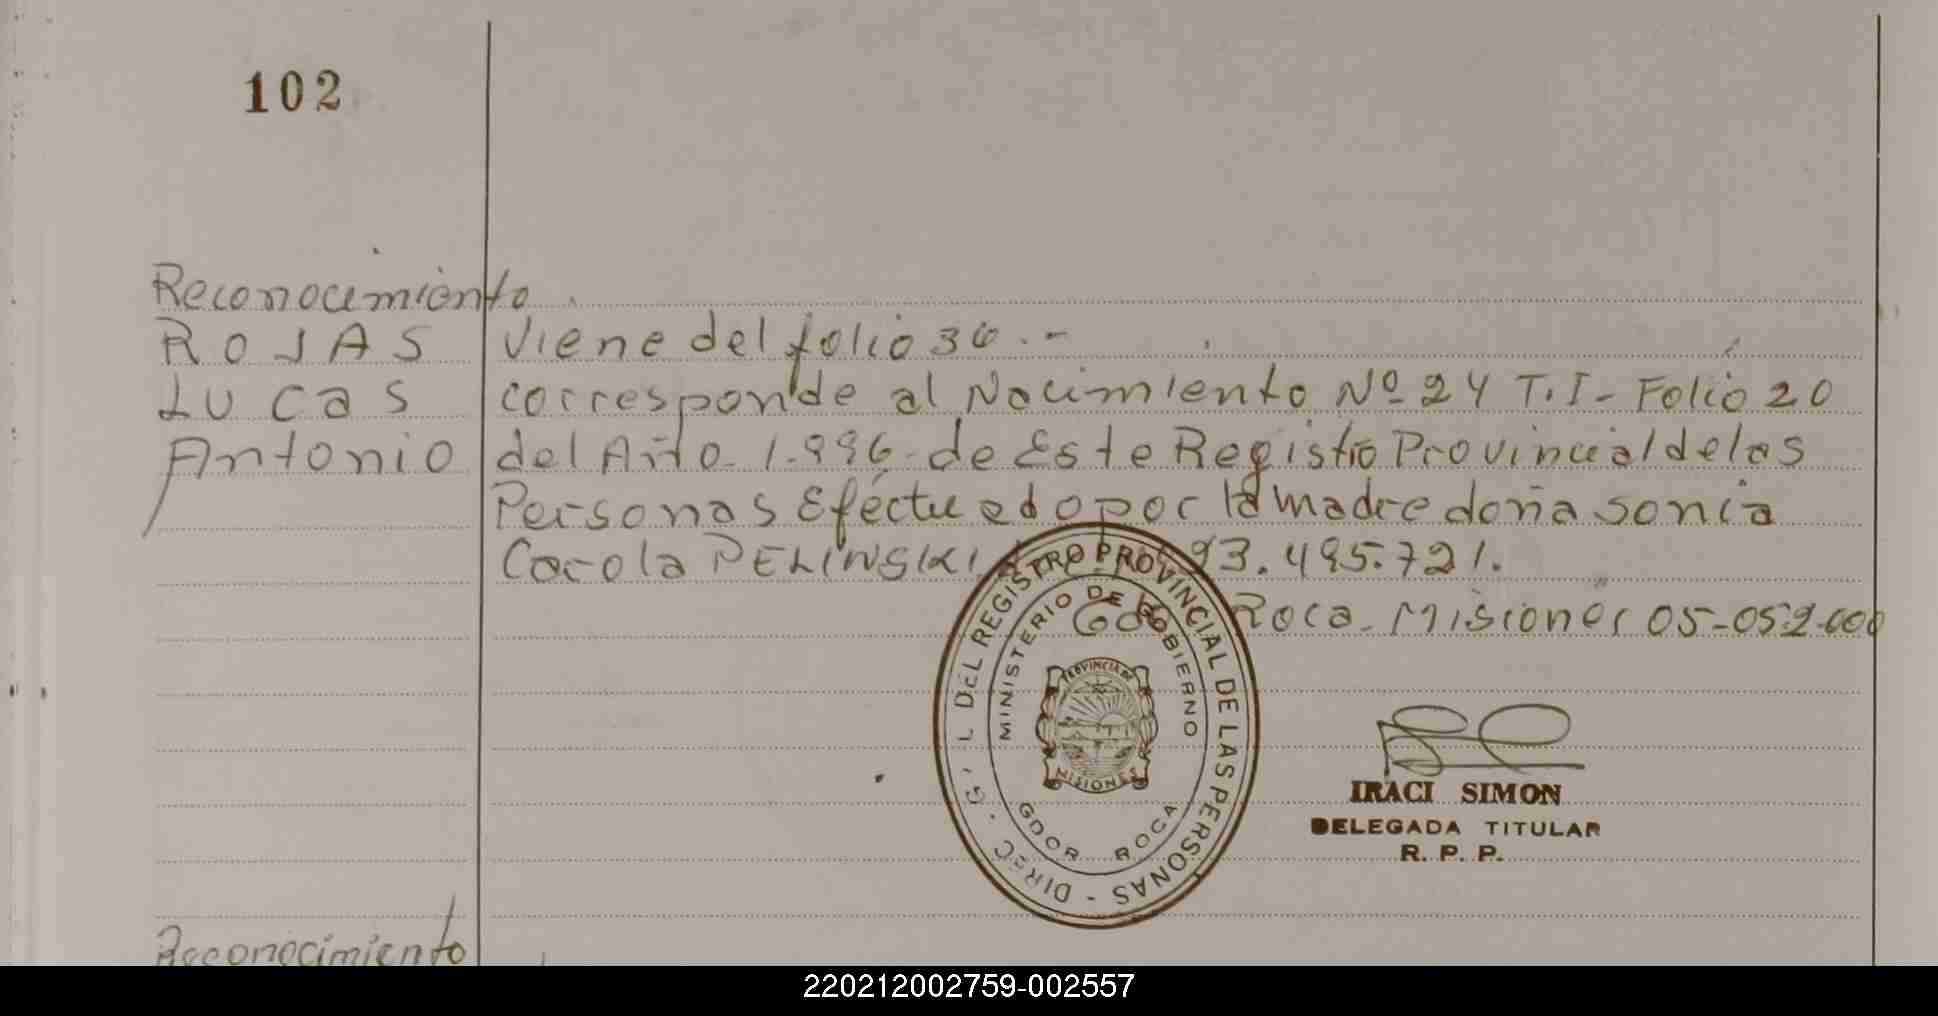 102
Reconocimiento
ROJAS
Lucas
Antonio
Viene del folio 36.-
corresponde al Nacimiento Nº 24 T.I- Folio 20
del Año 1.996 de Este Registro Provincial de las
Personas Efectuado por la madre doña Sonia
Carola PELINSKI 93.495.721.
Roca. Misiones 05-05-2.000
DIREC. G. L DEL REGISTRO PROVINCIAL DE LAS PERSONAS -
MINISTERIO DE GOBIERNO
PROVINCIA DE
MISIONES
GDOR. ROCA
IRACI SIMON
DELEGADA TITULAR
R. P. P.
Reconocimiento
220212002759-002557